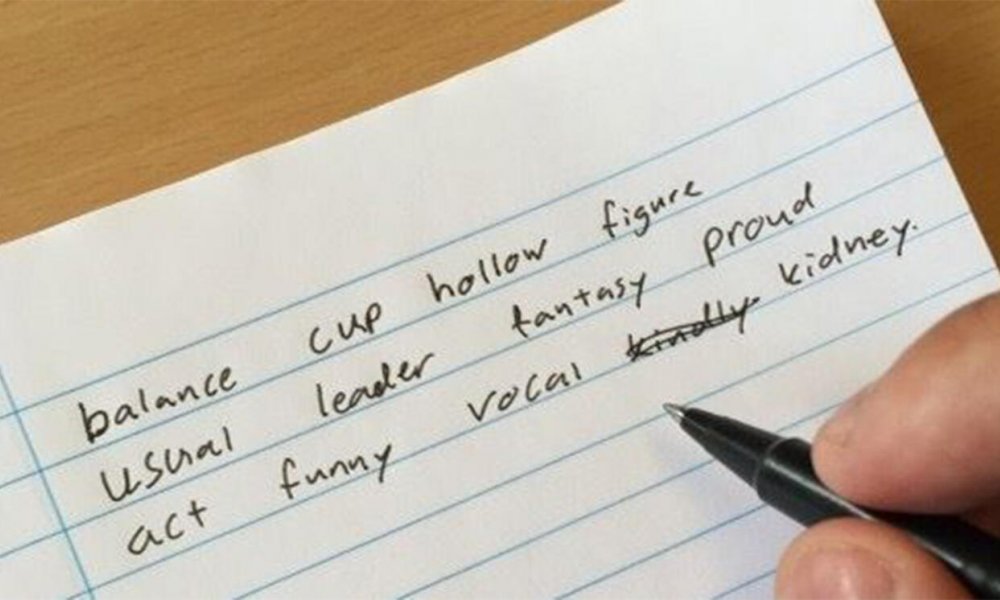 balance cup hollow figure
usual leader fantasy proud
act funny vocal kindly kidney.